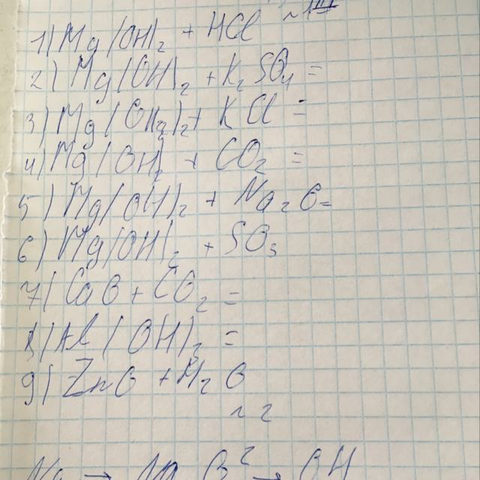 1) Mg(OH)₂ + HCl
2) Mg(OH)₂ + K₂SO₄ =
3) Mg(OH)₂ + KCl =
4) Mg(OH)₂ + CO₂ =
5) Mg(OH)₂ + Na₂O =
6) Mg(OH)₂ + SO₃
7) CaO + CO₂ =
8) Al(OH)₃ =
9) ZnO + H₂O
~ 2